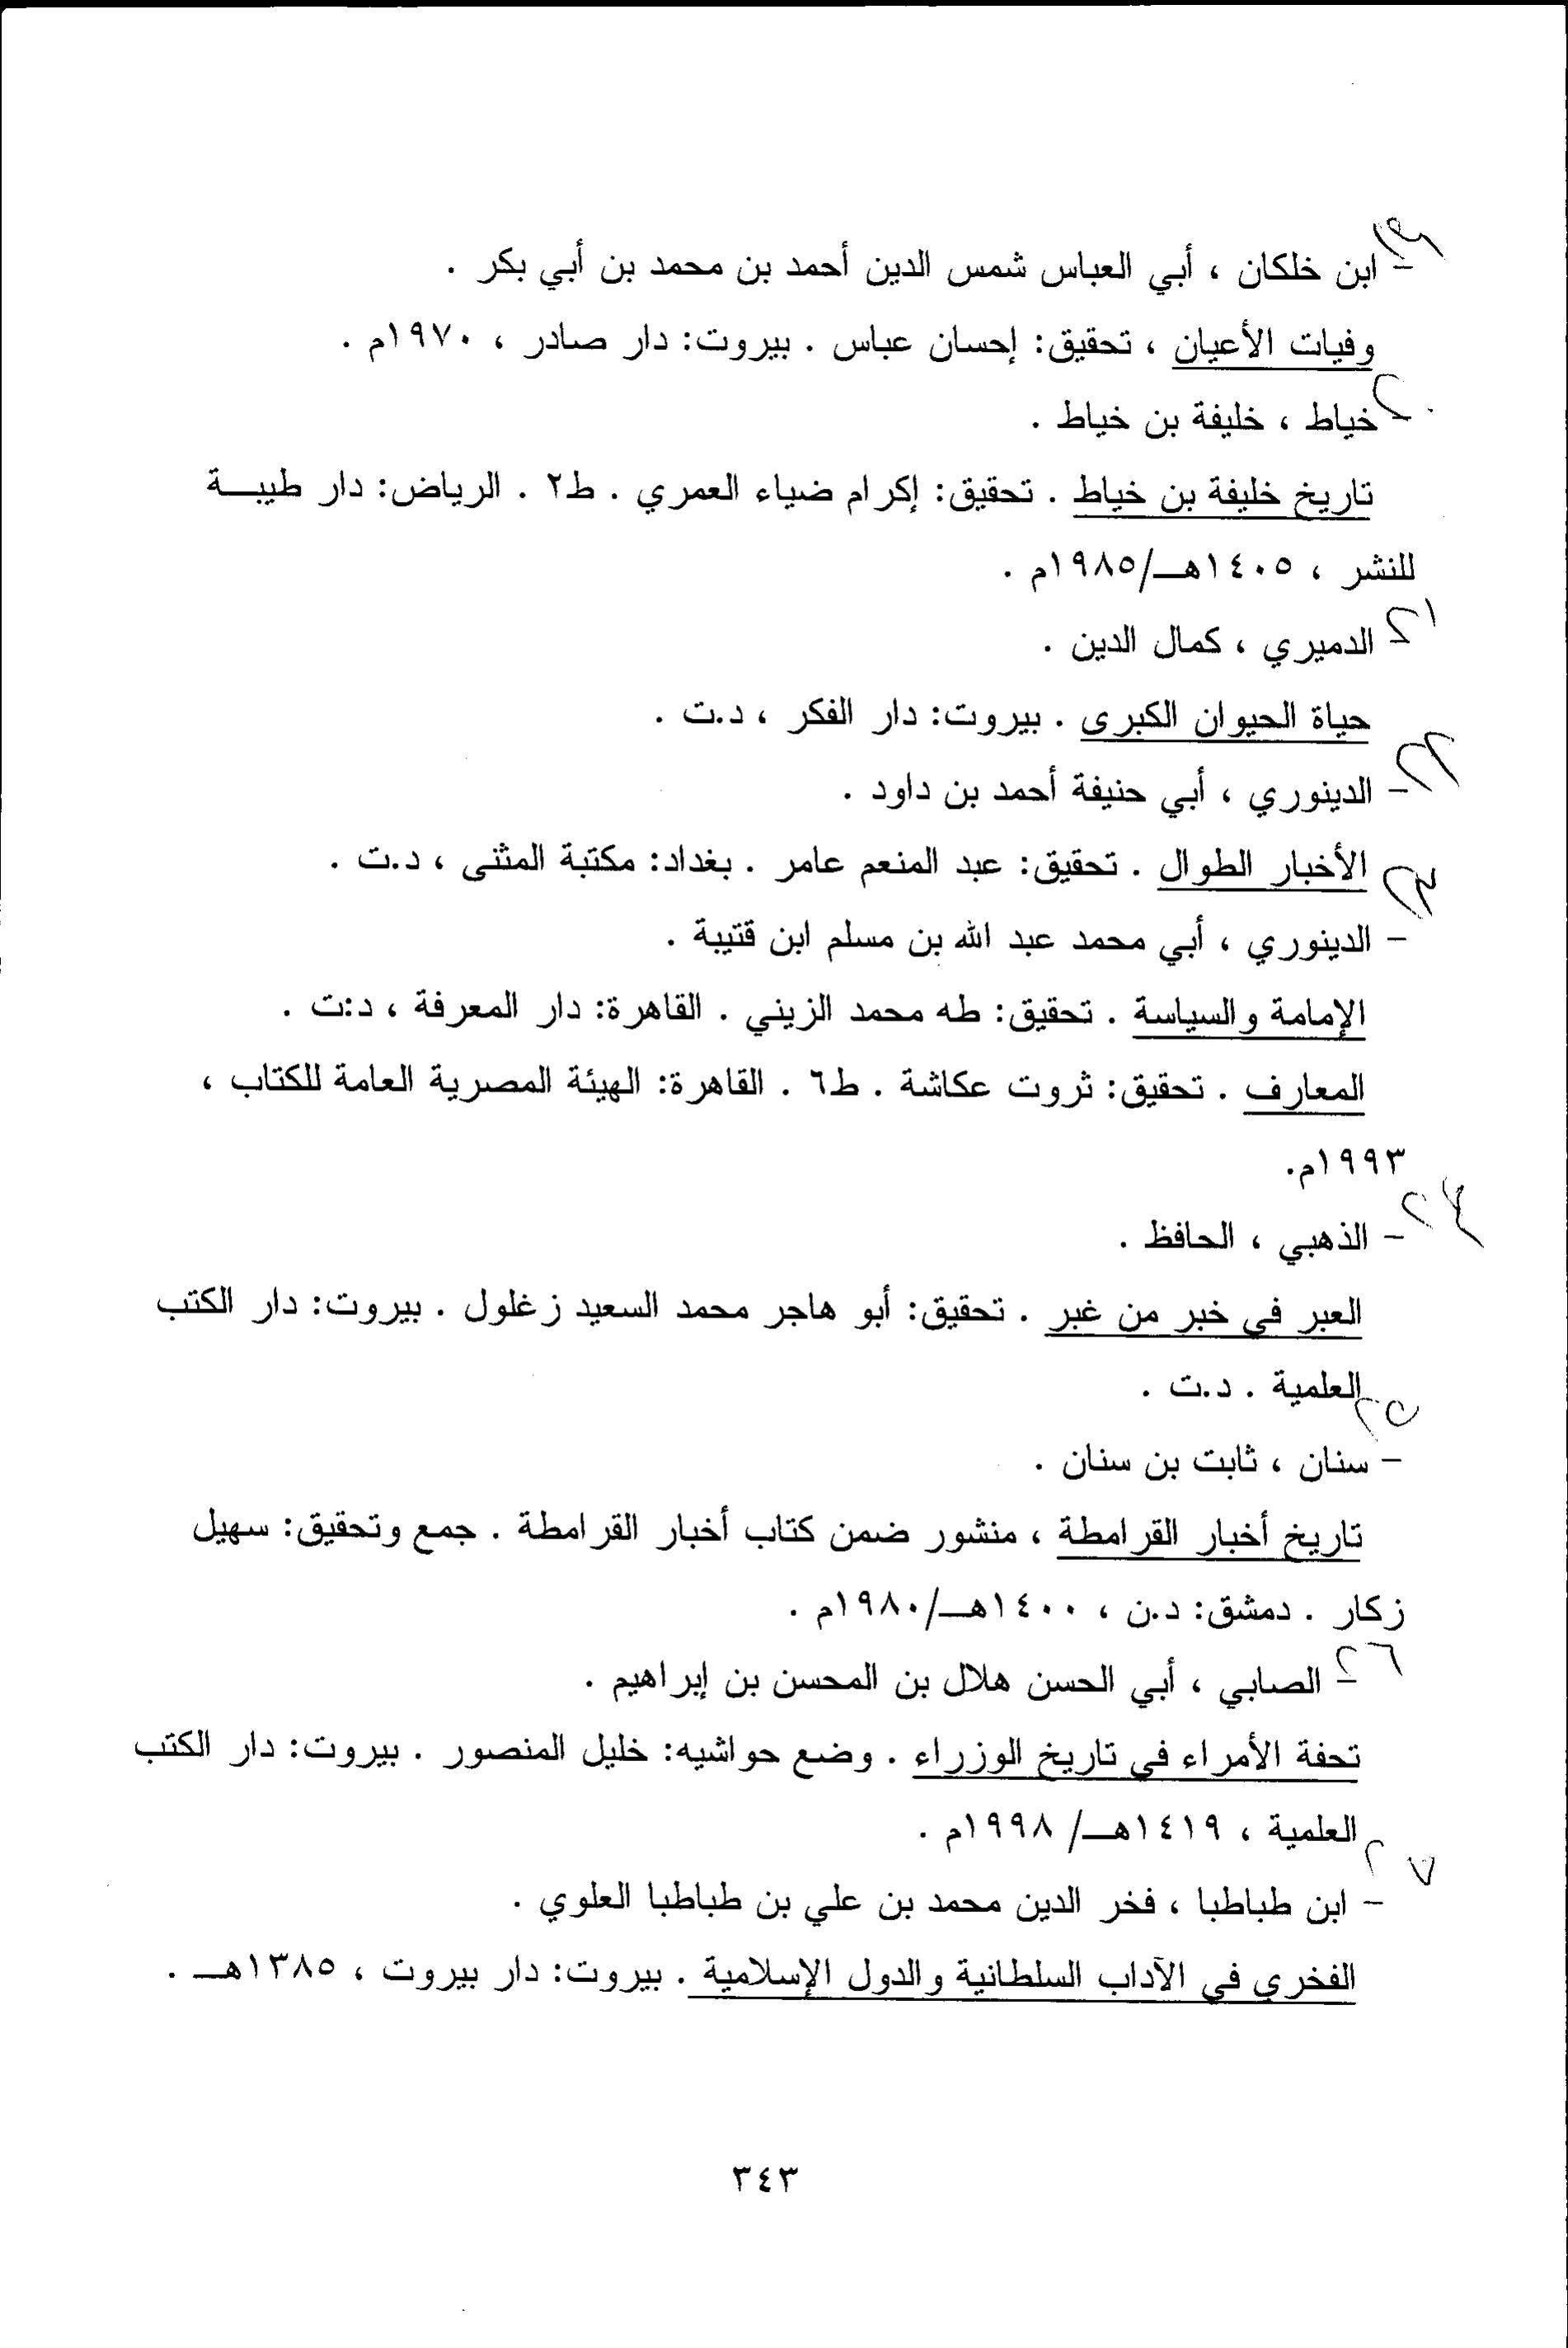 - ابن خلكان ، أبي العباس شمس الدين أحمد بن محمد بن أبي بكر .
وفيات الأعيان ، تحقيق: إحسان عباس . بيروت: دار صادر ، ١٩٧٠م .
- خياط ، خليفة بن خياط .
تاريخ خليفة بن خياط . تحقيق: إكرام ضياء العمري . ط٢ . الرياض: دار طيبـــة
للنشر ، ١٤٠٥هــ/١٩٨٥م .
- الدميري ، كمال الدين .
حياة الحيوان الكبرى . بيروت: دار الفكر ، د.ت .
- الدينوري ، أبي حنيفة أحمد بن داود .
الأخبار الطوال . تحقيق: عبد المنعم عامر . بغداد: مكتبة المثنى ، د.ت .
- الدينوري ، أبي محمد عبد الله بن مسلم ابن قتيبة .
الإمامة والسياسة . تحقيق: طه محمد الزيني . القاهرة: دار المعرفة ، د:ت .
المعارف . تحقيق: ثروت عكاشة . ط٦ . القاهرة: الهيئة المصرية العامة للكتاب ،
١٩٩٣م.
- الذهبي ، الحافظ .
العبر في خبر من غبر . تحقيق: أبو هاجر محمد السعيد زغلول . بيروت: دار الكتب
العلمية . د.ت .
- سنان ، ثابت بن سنان .
تاريخ أخبار القرامطة ، منشور ضمن كتاب أخبار القرامطة . جمع وتحقيق: سهيل
زكار . دمشق: د.ن ، ١٤٠٠هــ/١٩٨٠م .
- الصابي ، أبي الحسن هلال بن المحسن بن إبراهيم .
تحفة الأمراء في تاريخ الوزراء . وضع حواشيه: خليل المنصور . بيروت: دار الكتب
العلمية ، ١٤١٩هــ/ ١٩٩٨م .
- ابن طباطبا ، فخر الدين محمد بن علي بن طباطبا العلوي .
الفخري في الآداب السلطانية والدول الإسلامية . بيروت: دار بيروت ، ١٣٨٥هــ .
٣٤٣